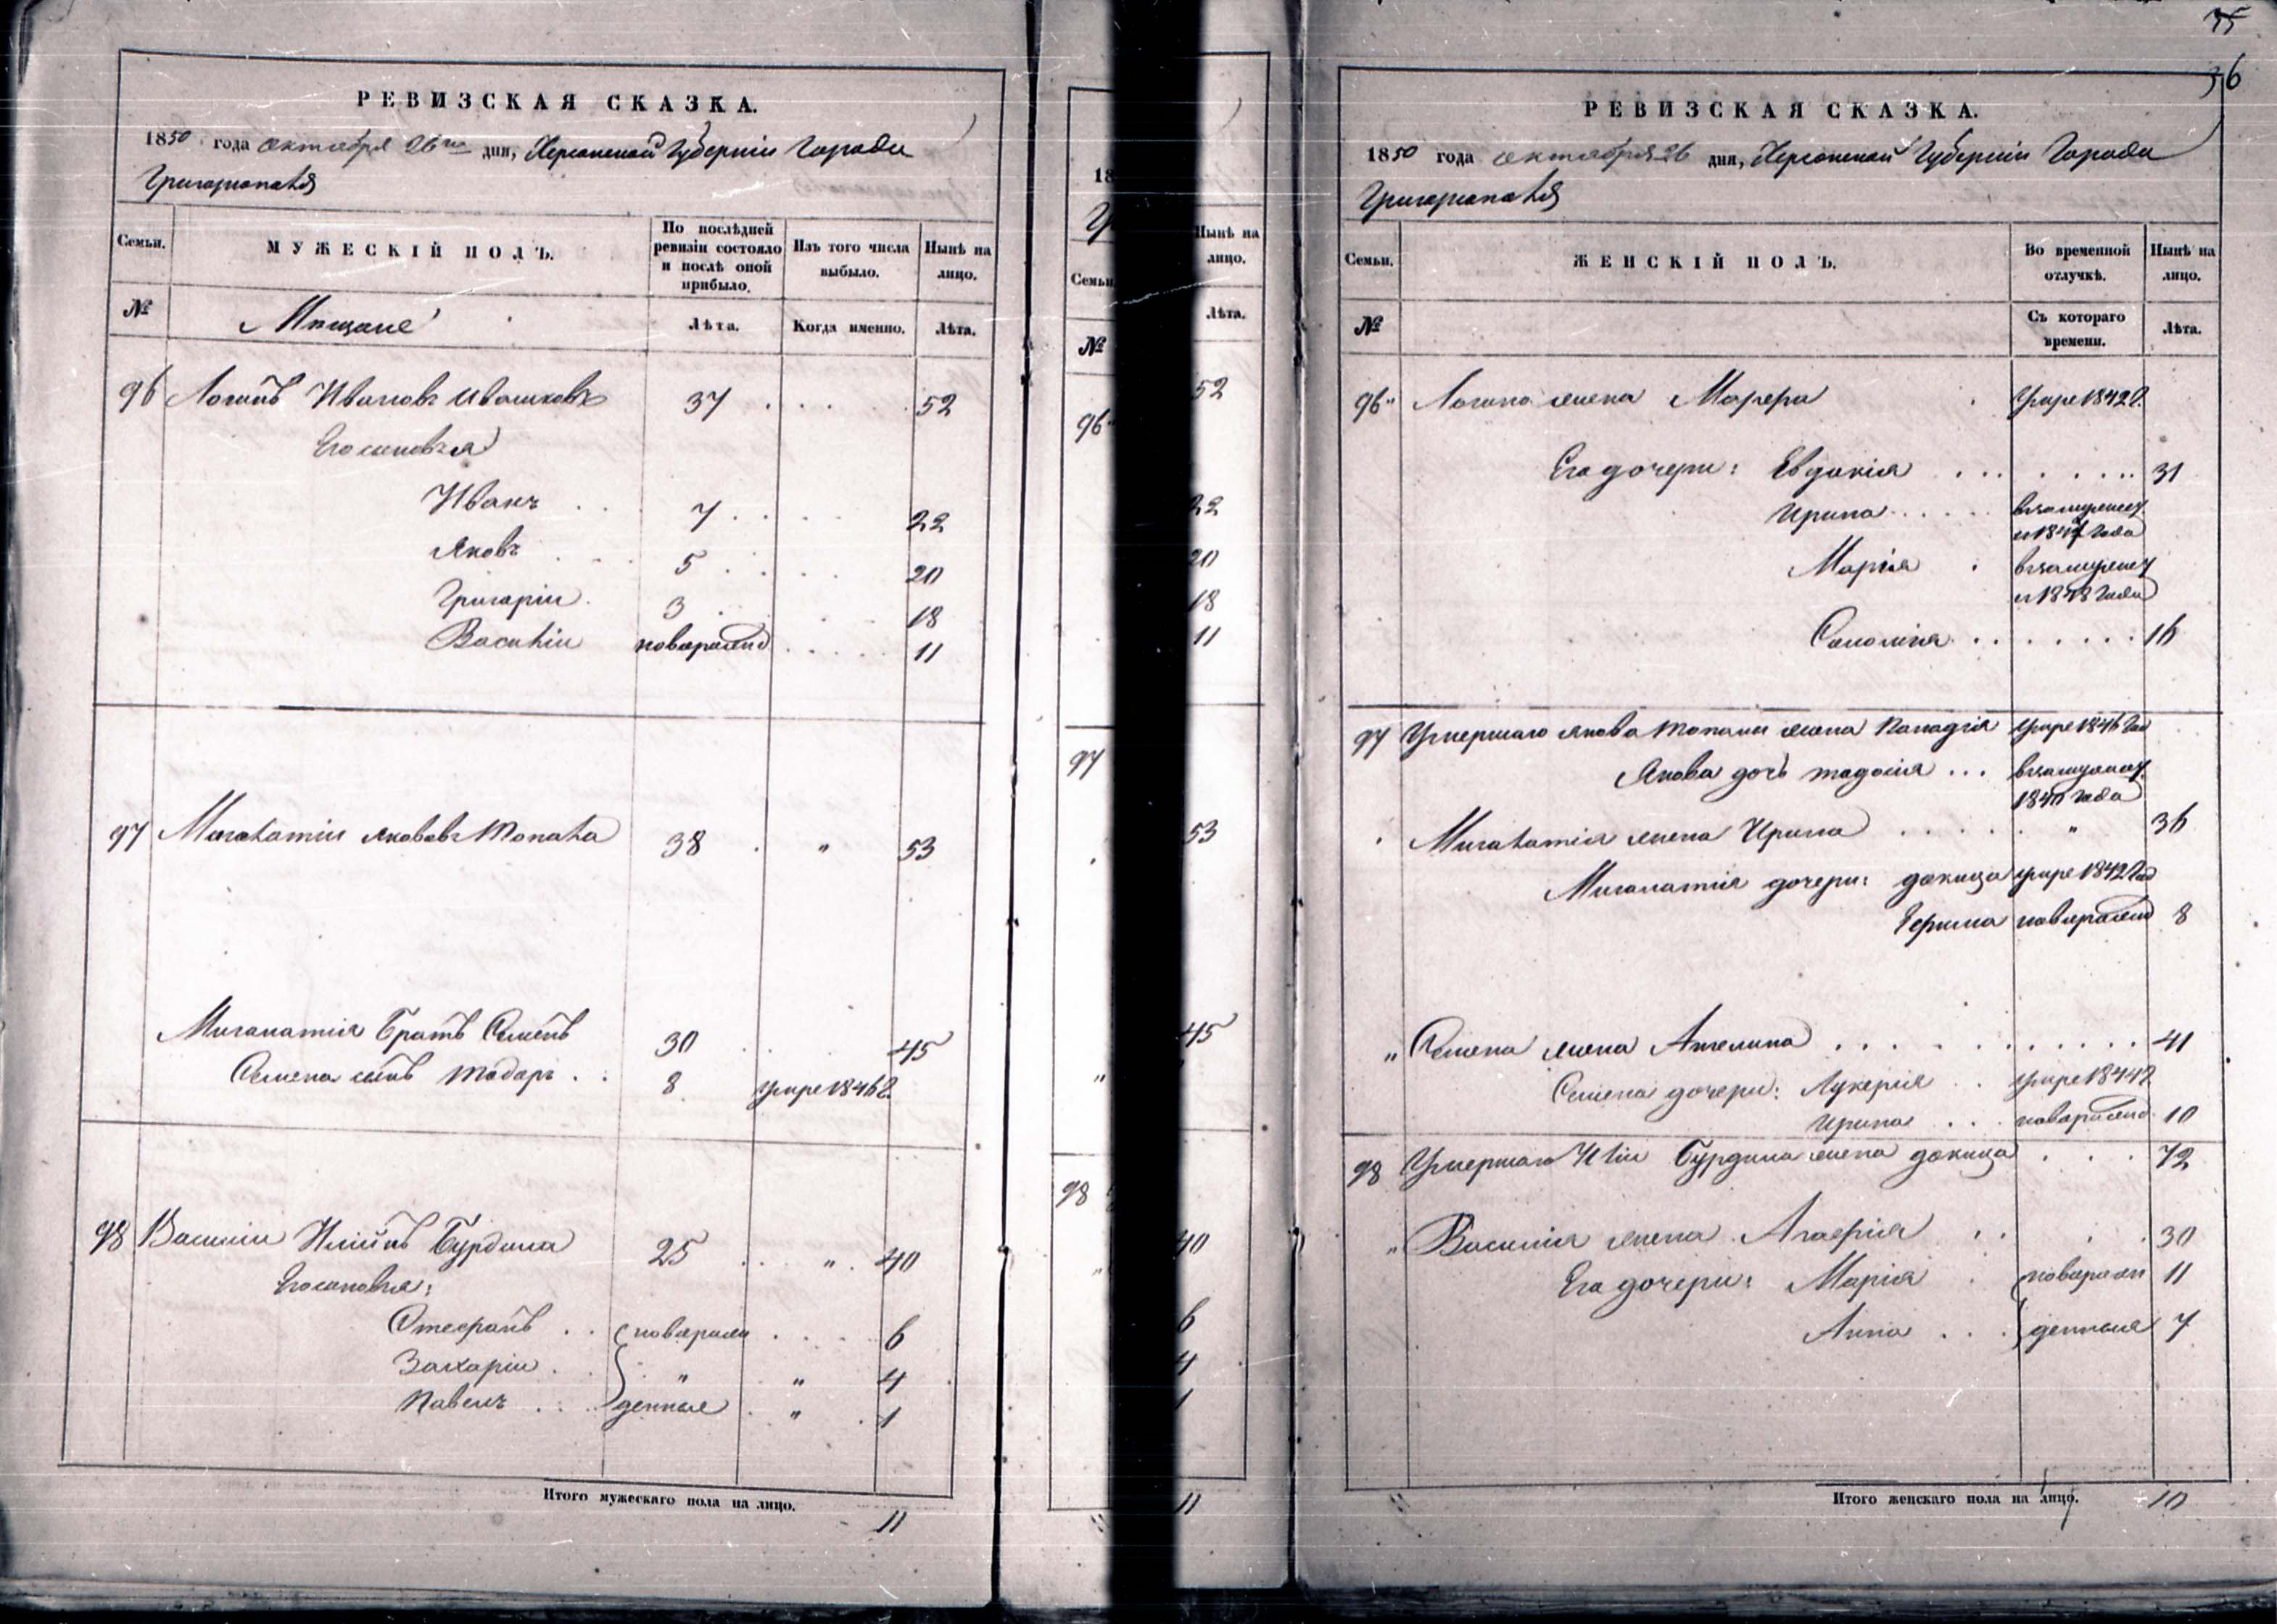 РЕВИЗСКАЯ СКАЗКА.
1850 года октября 26го дня, Херсонской Губернiи Города
Григорiополя
Семьи. МУЖЕСКIЙ ПОЛЪ. По послѣдней ревизiи состояло и послѣ оной прибыло. Изъ того числа выбыло. Нынѣ на лицо.
№ Мѣщане Лѣта. Когда именно. Лѣта.
96 Логинъ Ивановъ Ивашковъ 37 . . . . 52
Его сыновья
Иванъ . . 7 . . . . 22
Яковъ . . 5 . . . . 20
Григорiи . 3 . . . . 18
Василiи новорожд . . . . . 11
97 Яковавъ 38 . " 53
Братъ Семенъ 30 . . 45
Семена сынъ Тодоръ . . 8 умре 1846 г.
98 Василiи Илiинъ Бурдила 25 . . " . 40
Его сыновья:
Стефанъ . . новорожд . . . . 6
Захарiи . " " 4
Павелъ . . денные . " . 1
Итого мужескаго пола на лицо.
11
18
Нынѣ на лицо.
Семьи
Лѣта.
№
52
96
22
20
18
11
97
53
45
98
40
6
4
1
11
35
36
РЕВИЗСКАЯ СКАЗКА.
1850 года октября 26 дня, Херсонской Губернiи Города
Григорiополя
Семьи. ЖЕНСКIЙ ПОЛЪ. Во временной отлучкѣ. Нынѣ на лицо.
№ Съ котораго времени. Лѣта.
96 Логина жена умре 1842 г.
Его дочери: Евдокiя . . . . . . . 31
Ирина . . . . . въ замужест
съ 1847 года
Марiя . въ замужест
съ 1848 года
Соломiя . . . . . . . 16
97 Умершаго Якова жена умре 1846 год
Якова дочь . . . въ замужест
1840 года
жена Ирина . . . . . " 36
дочери: докица умре 1842 год
новорожд 8
" Семена жена Ангелина . . . . . . . . . . 41
Семена дочери: Лукерiя . . умре 1844 г
Ирина . . . новорожд. 10
98 Умершаго Илiи Бурдила жена докица . . . 72
" Василiя жена Агафiя . . . . 30
Его дочери: Марiя . новорож 11
Анна . . . денныя 7
Итого женскаго пола на лицо. 10